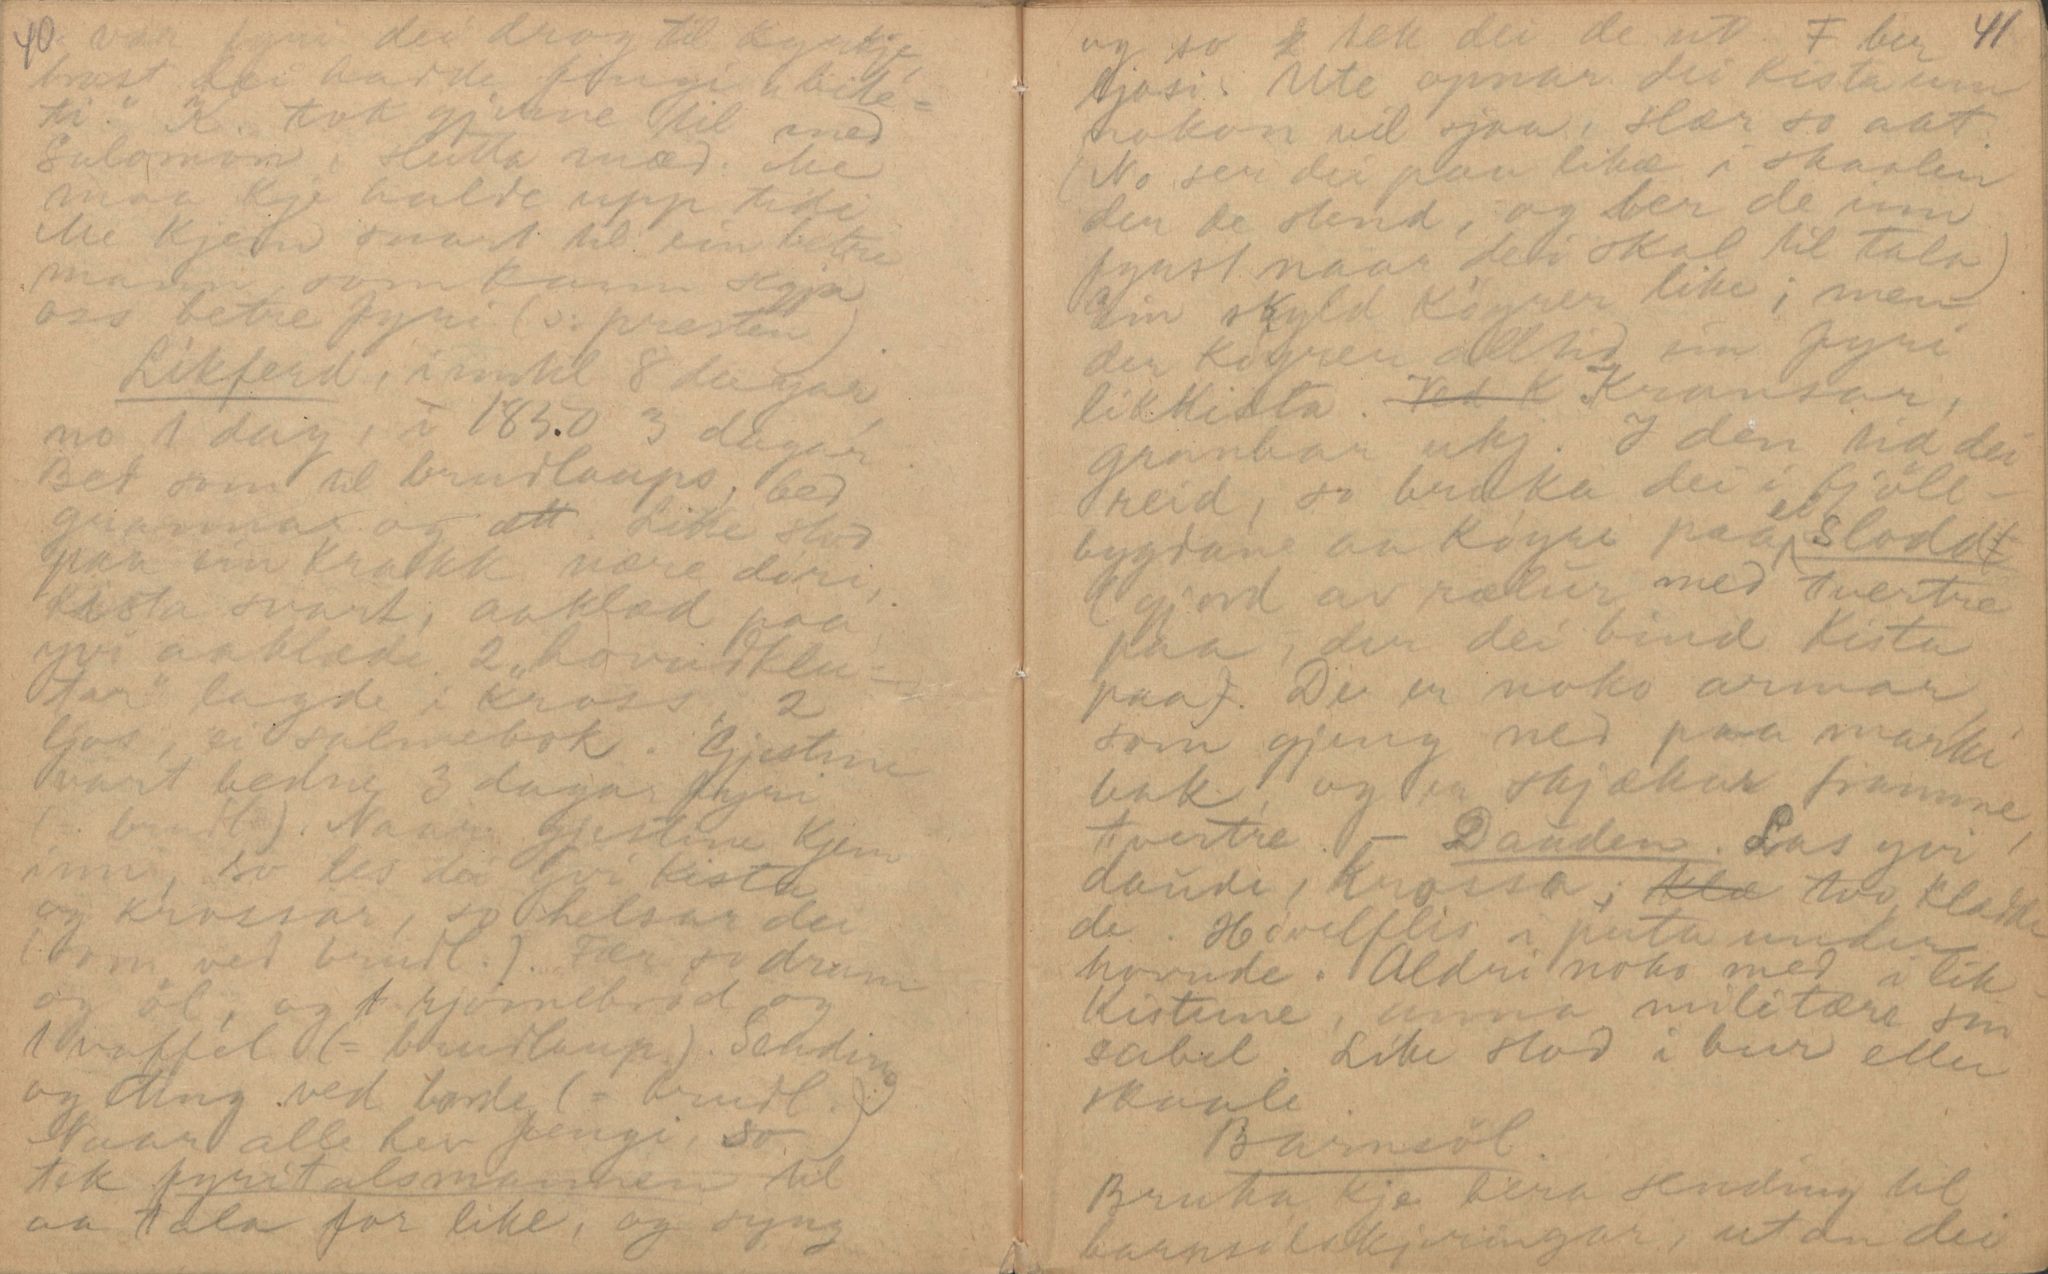 40
var fyri dei drog til kyrkje,
brast dei hadde fingi bite-
ti." K. tok gjerne til med
Salomon, slutta med. Me
maa kje halde upp tidi
Me kjem snart til ein betre
mann som kann segja
oss betre fyri (ɔ: presten)
Likferd, imkl 8 dagar,
no 1 dag, i 1850 3 dagar.
Bed som til brudlaups, bed
grannar og ætt. Like stod
paa ein krakk nære döri,
Kista svart, aaklæd paa,
yvi aaklæde 2 "hovudklu-
tar" lagde i kross, 2
ljos, ei salmebok. Gjestine
vart bedne 3 dagar fyri
(= brudl.). Naar gjestine kjem
inn, so les dei yvi kista
og krossar, so helsar dei
(som ved brudl.). Fær so dram
og öl, og 1 rjomebröd og
1 vaffel (= brudlaup). Sending
og ting ved borde (= brudl.)
Naar alle hev fengi, so
tek fyritalsmannen til
aa tala for like, og syng
41
og so tek dei de ut. F ber
ljosi. Ute opnar dei kista um
nokon vil sjaa, slær so att
(No ser dei paa like i skaalin
der de stend, og ber de inn
fyrst naar dei skal til tala)
Ein skyld köyrer like, men
der köyrer alltid ein fyri
likkista. Ved K Kransar,
granbar ukj. I den tid dei
reid, so bruka dei i fjöll-
bygdane aa köyre paa ei slodd
(gjord av rælur med tvertre
paa, der dei bind kista
paa). De er noko armar,
som gjeng ned paa marki
bak, og er skjækar framme,
tvertre. – Dauden. Las yvi
daude, krossa, klæ tvo, kladde
de. Hövelflis i puta under
hovude. Aldri noko med i lik-
kistune, anna militære sin
sabel. Like stod i bur eller
skaale.
Barnsöl.
Bruka kje bera sending til
barnsöls kjeringar, utan dei